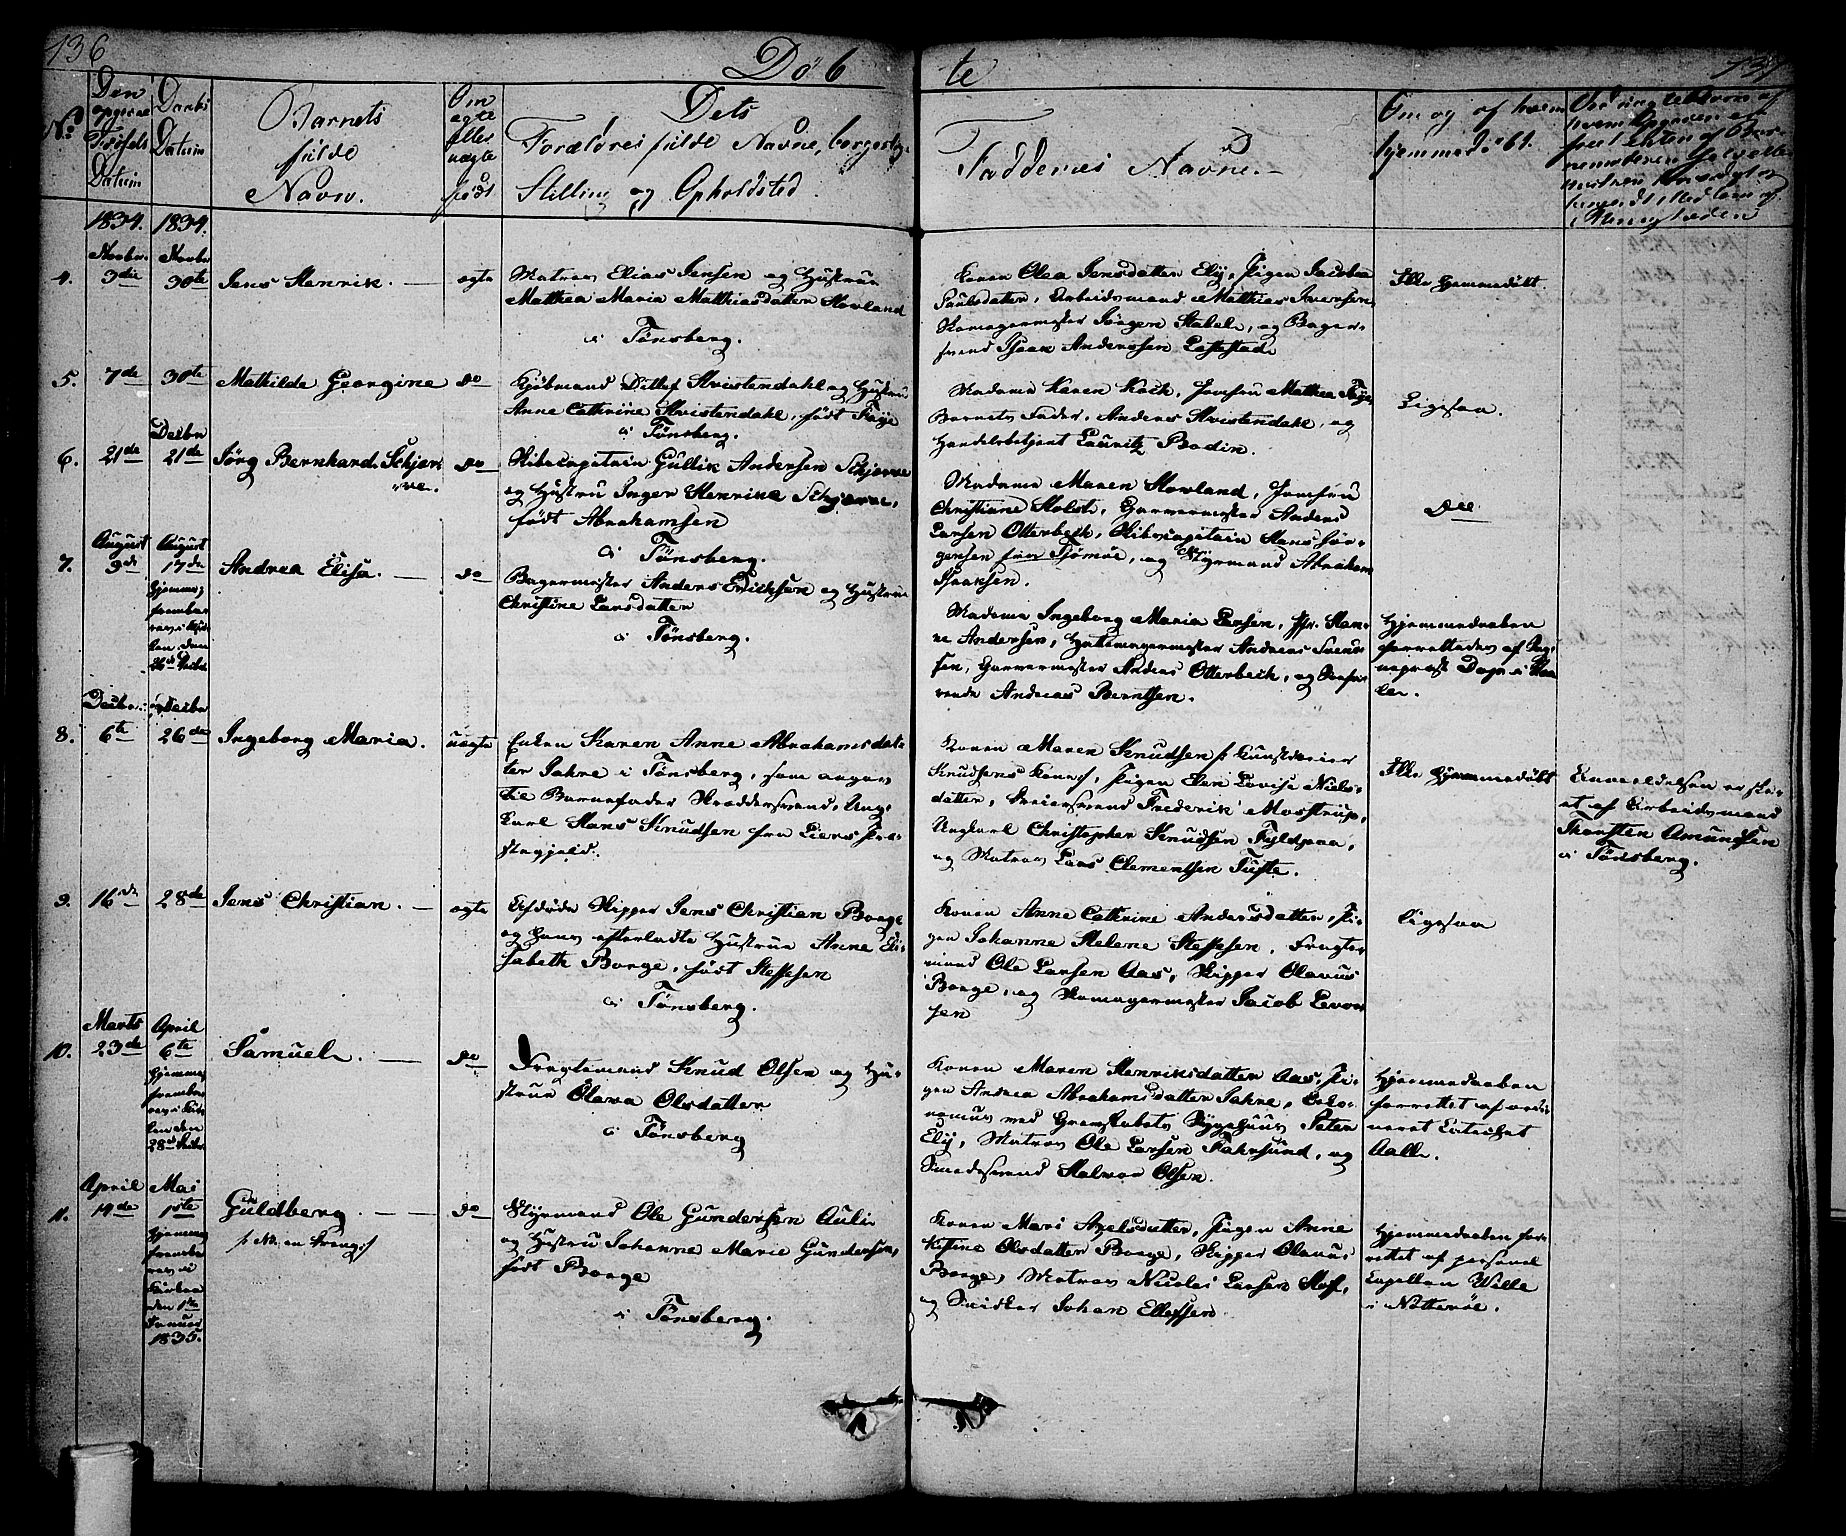 136
Döb
te
137
No
Den
Fødsels
Datum
Daabs
Datum
Barnets
fulde
Navn.
Om
ægte
eller
uægte
født
Dets
Forældres fulde Navne, borgerlige
Stilling og Opholdsted.
Faddernes Navne.
Om og af hvem
hjemmedöbt.
1834.
1834.
Novbr.
Novbr
4.
3die
30te
Jens Henrik.
ægte
Matros Elias Jensen og Hustrue
Mathea Maria Mathiasdatter Hovland
i Tönsberg.
Konen Olea Jensdatter Ely, Pigen Jacobea
Paulsdatter, Arbeidsmand Mathias Iversen,
Skomagermester Jörgen Stabel, og Bager-
svend Isaak Anderssen
Ikke hjemmedöbt.
5.
7de
30te
Mathilde Georgine
do
Kjöbmand Ditlef Kvistendahl og Hustrue
Anne Cathrine Kvistendahl, født Föye
i Tönsberg.
Madame Karen Koch, Jomfru Mathea Föye,
Barnets Fader, Anders Kvistendahl, og
Handelsbetjent Lauritz Bodin.
Ligesaa.
Decbr
6.
21de
21de
Jörg Bernhard Schjer-
ve.
do
Skibscapitain Gullik Andersen Schjerve
og Hustru Inger Henrike Schjerve,
født Abrahamsen
i Tönsberg.
Madame Maren Hovland, Jomfru
Christiane Holst, Garvermester Anders
Larsen Otterbeck, Skibscapitain Hans Jör-
gensen fra Tjömöe, og Styrmand Abraham
Isaaksen.
Do
August
August
7.
9de
17de
hjemme,
frembaa-
ren i Kir-
ken den
26de Decbr
Andrea Elisa.
do
Bagermester Anders Erichsen og Hustrue
Christine Larsdatter
i Tönsberg.
Madame Ingeborg Maria Larsen, Jfr. Han-
ne Andersen, Hattemagermester Andreas Svend-
sen, Garvermester Anders Otterbeck, og
Andreas Berntsen.
Hjemmedaaben
forrettedes af Sog-
nepræst
Decbr.
Decbr
8.
6te
26de
Ingeborg Maria.
uægte
Enken Karen Anne Abrahamsdat-
ter Sahne i Tönsberg, som angav
til Barnefader Skræddersvend, Ung-
karl Hans Knudsen fra Liers Præ-
stegjeld.
Konen Maren Knudsen
Knudsens Kone, Pigen Elen Lovise Niels-
datter, Dreiersvend Frederik Mostrup,
Ungkarl Christopher Knudsen Fyldpaa,
og Matros Lars Clementsen Tufte.
Ikke hjemmedöbt
Anmeldelsen er ske-
et af Arbeidsmand
Thorsten Amundsen
i Tönsberg.
9.
16de
28de
Jens Christian.
ægte
Afdøde Skipper Jens Christian Borge
og hans efterladte Hustrue Anne Eli-
sabeth Borge, født Steffesen
i Tönsberg.
Konen Anne Cathrine Andersdatter, Pi-
gen Johanne Helene Steffesen, Fragte-
mand Ole Larsen Aas, Skipper Olavus
Borge, og Skomagermester Jacob
sen
Ligesaa
Marts
April
10.
23de
6te
hjemme,
frembaa-
ren i Kir-
ken den
28de Decbr
Samuel.
do
Fragtemand Knud Olsen og Hu-
strue Olava Olsdatter
i Tönsberg
Konen Maren Henriksdatter Aas, Pi-
gen Andrea Abrahamsdatter Sahne, Oeko-
nomus ved Grevskabets Sygehuus Peter
Ely, Matros Ole Larsen Fahrsund, og
Smedesvend Halvor Olsen.
Hjemmedaaben
forrettet af ordi-
neret Catechet
Aall.
April
Mai
11.
14de
1ste
hjemme,
frembaa-
ren i
Kirken
den 1ste
Januar
1835.
Guldberg.
/: NB. en Dreng :/
do
Styrmand Ole Gundersen Auli
og Hustru Johanne Marie Gundersen,
født Borge
i Tönsberg.
Konen Mari Axelsdatter, Pigen Anne
Kistine Olsdatter Borge, Skipper Olavus
Borge, Matros Nicolai Larsen Hof,
og Snidker Johan Ellefsen.
Hjemmedaaben for-
rettet af personel
Capellan Wille
i Nötteröe.